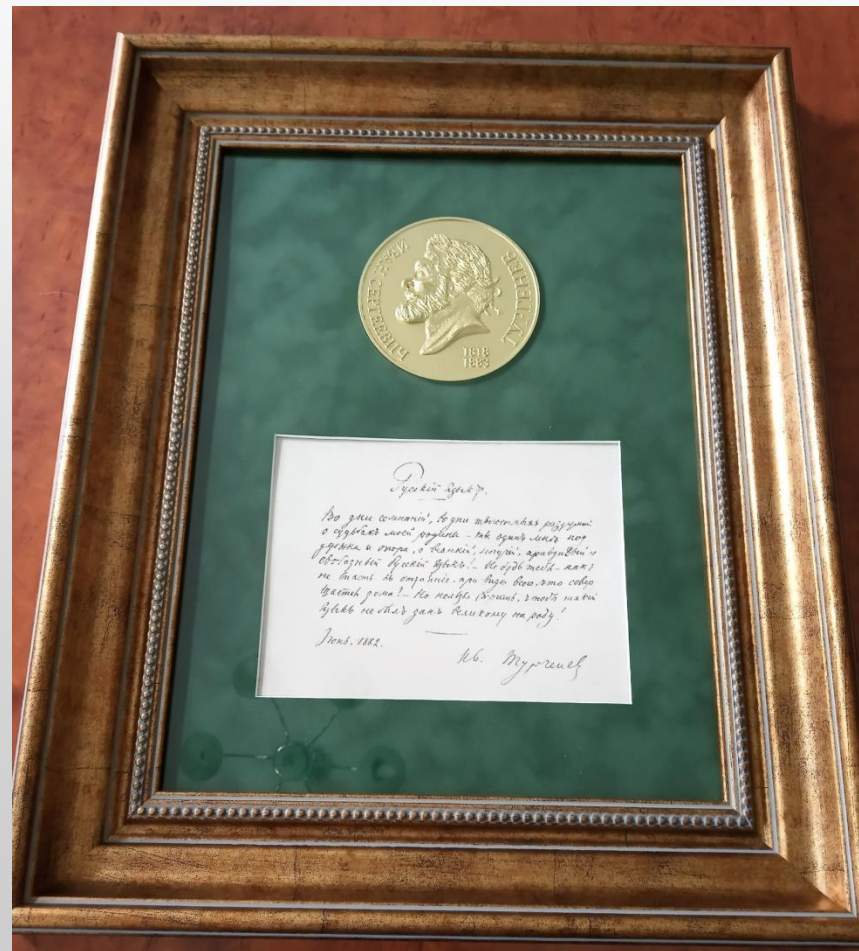 ИВАН СЕРГЕЕВИЧ
ТУРГЕНЕВ
1818
1883
Русскій языкъ.
Во дни сомнѣній, во дни тягостныхъ раздумій
о судьбахъ моей родины – ты одинъ мнѣ под
держка и опора, о великій, могучій, правдивый и
свободный русскій языкъ! – Не будь тебя – какъ
не впасть въ отчаяніе, при видѣ всего, что совер
шается дома? – Но нельзя вѣрить, чтобы такой
языкъ не былъ данъ великому народу!
Іюнь. 1882.
Ив. Тургенев